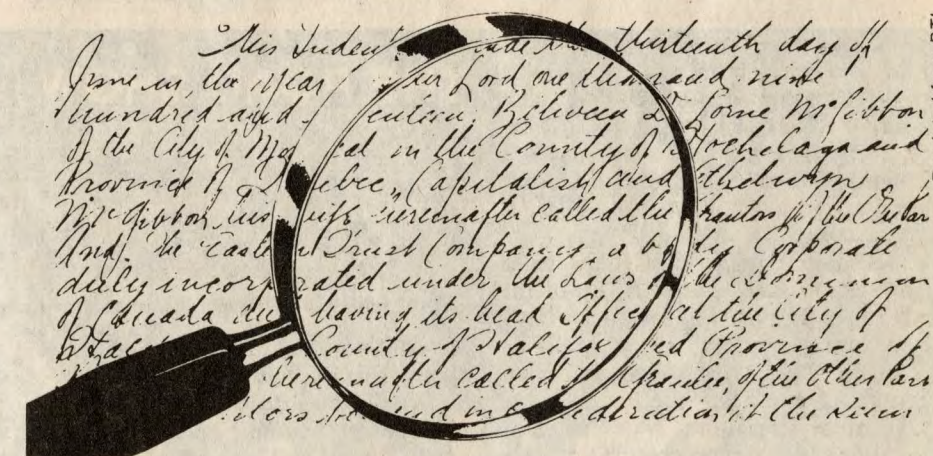 This Indent made the thirteenth day of
June in the year our Lord one thousand nine
hundred and enteen. Between D Lorne McGibbon
of the City of Mo eal in the County of Hochelaga and
Province of ebec, Capitalist and Ethelwyn
McGibbon his wife hereinafter called the Grantors of the One Par
And. The Easte n Trust Company, a body Corporate
duly incorp rated under the Laws of the Dominion
of Canada and having its head Office at the City of
County of Halifax Province of
hereinafter called Grantee, of the Other Par
the sum